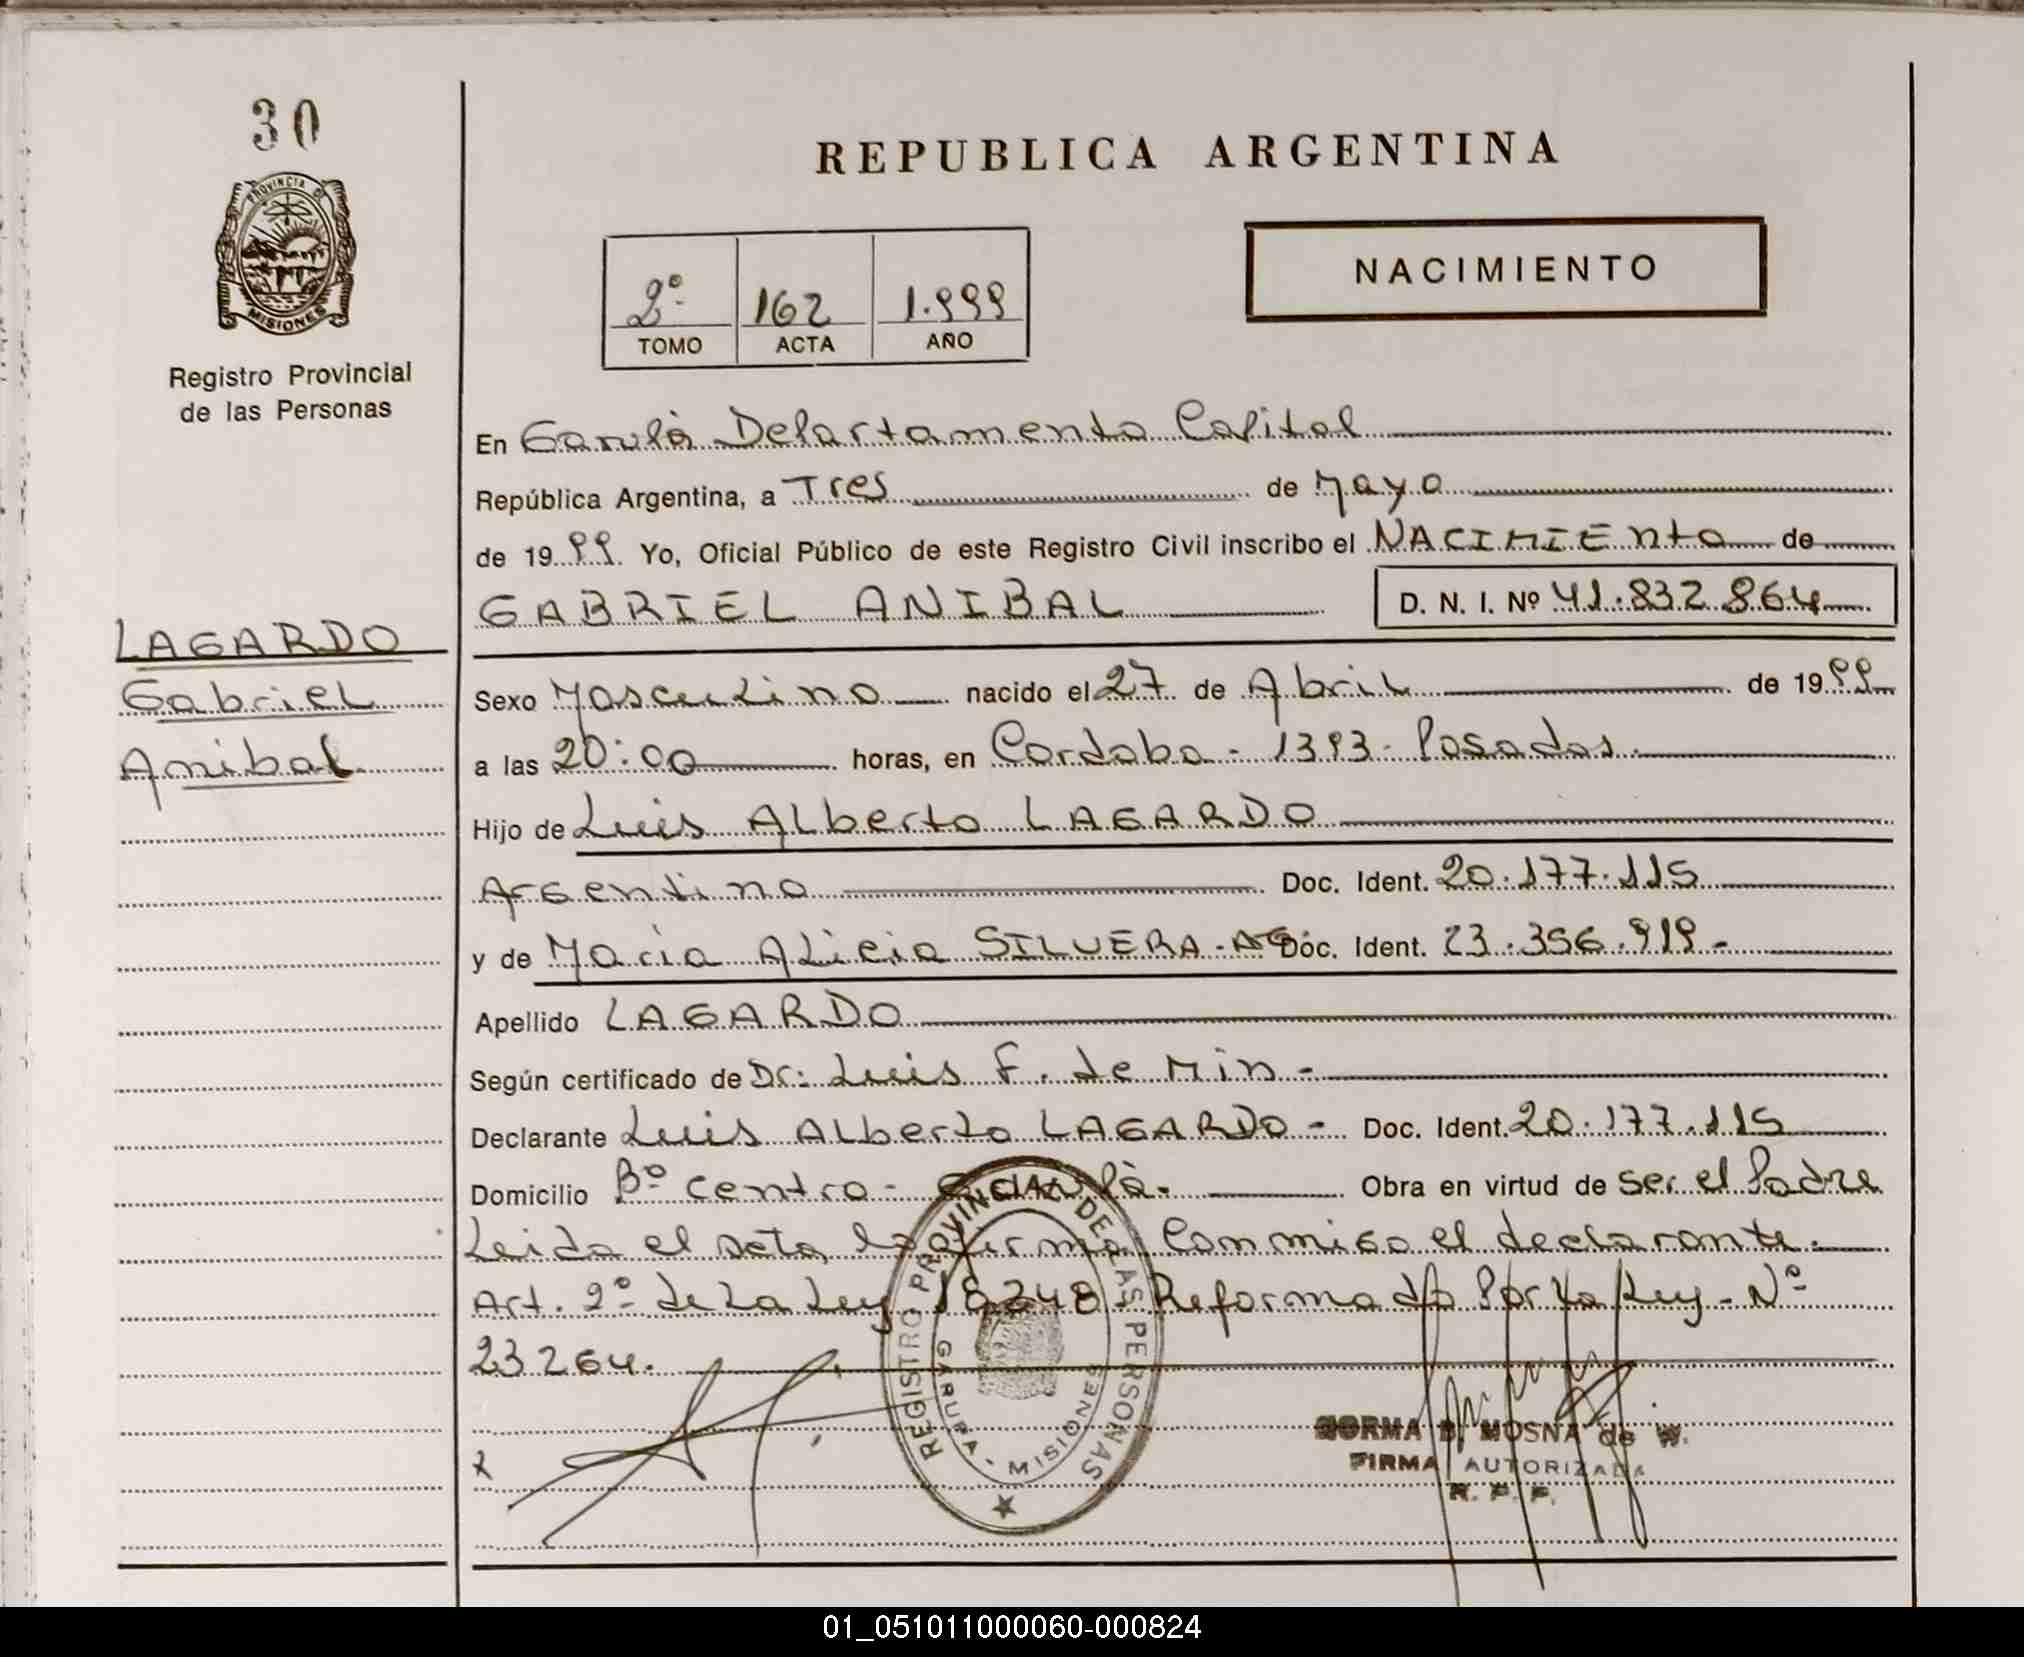 30
PROVINCIA DE
MISIONES
Registro Provincial
de las Personas
REPUBLICA ARGENTINA
NACIMIENTO
2º 162 1.999
TOMO ACTA AÑO
En Garupá Departamento Capital
República Argentina, a Tres de Mayo
de 1999 Yo, Oficial Público de este Registro Civil inscribo el NACIMIENTO de
GABRIEL ANIBAL D. N. I. Nº 41.832.864
LAGARDO
Gabriel
Anibal
Sexo Masculino nacido el 27 de Abril de 1999
a las 20:00 horas, en Cordoba - 1393 - Posadas.
Hijo de Luis Alberto LAGARDO
Argentino Doc. Ident. 20.177.115
y de Maria Alicia SILVERA - Doc. Ident. 23.356.919 -
Apellido LAGARDO
Según certificado de Dr: Luis F. de Min -
Declarante Luis Alberto LAGARDO - Doc. Ident. 20.177.115
Domicilio Bº Centro - Garupá. Obra en virtud de ser el Padre
Leida el acta, la firma Conmigo el declarante.
Art. 2º de La Ley 18248 - Reformado Por La Ley - Nº
23264.
REGISTRO PROVINCIAL DE LAS PERSONAS
GARUPA - MISIONES
x
NORMA B. MOSNA de W.
FIRMA AUTORIZADA
R. P. P.
01_051011000060-000824